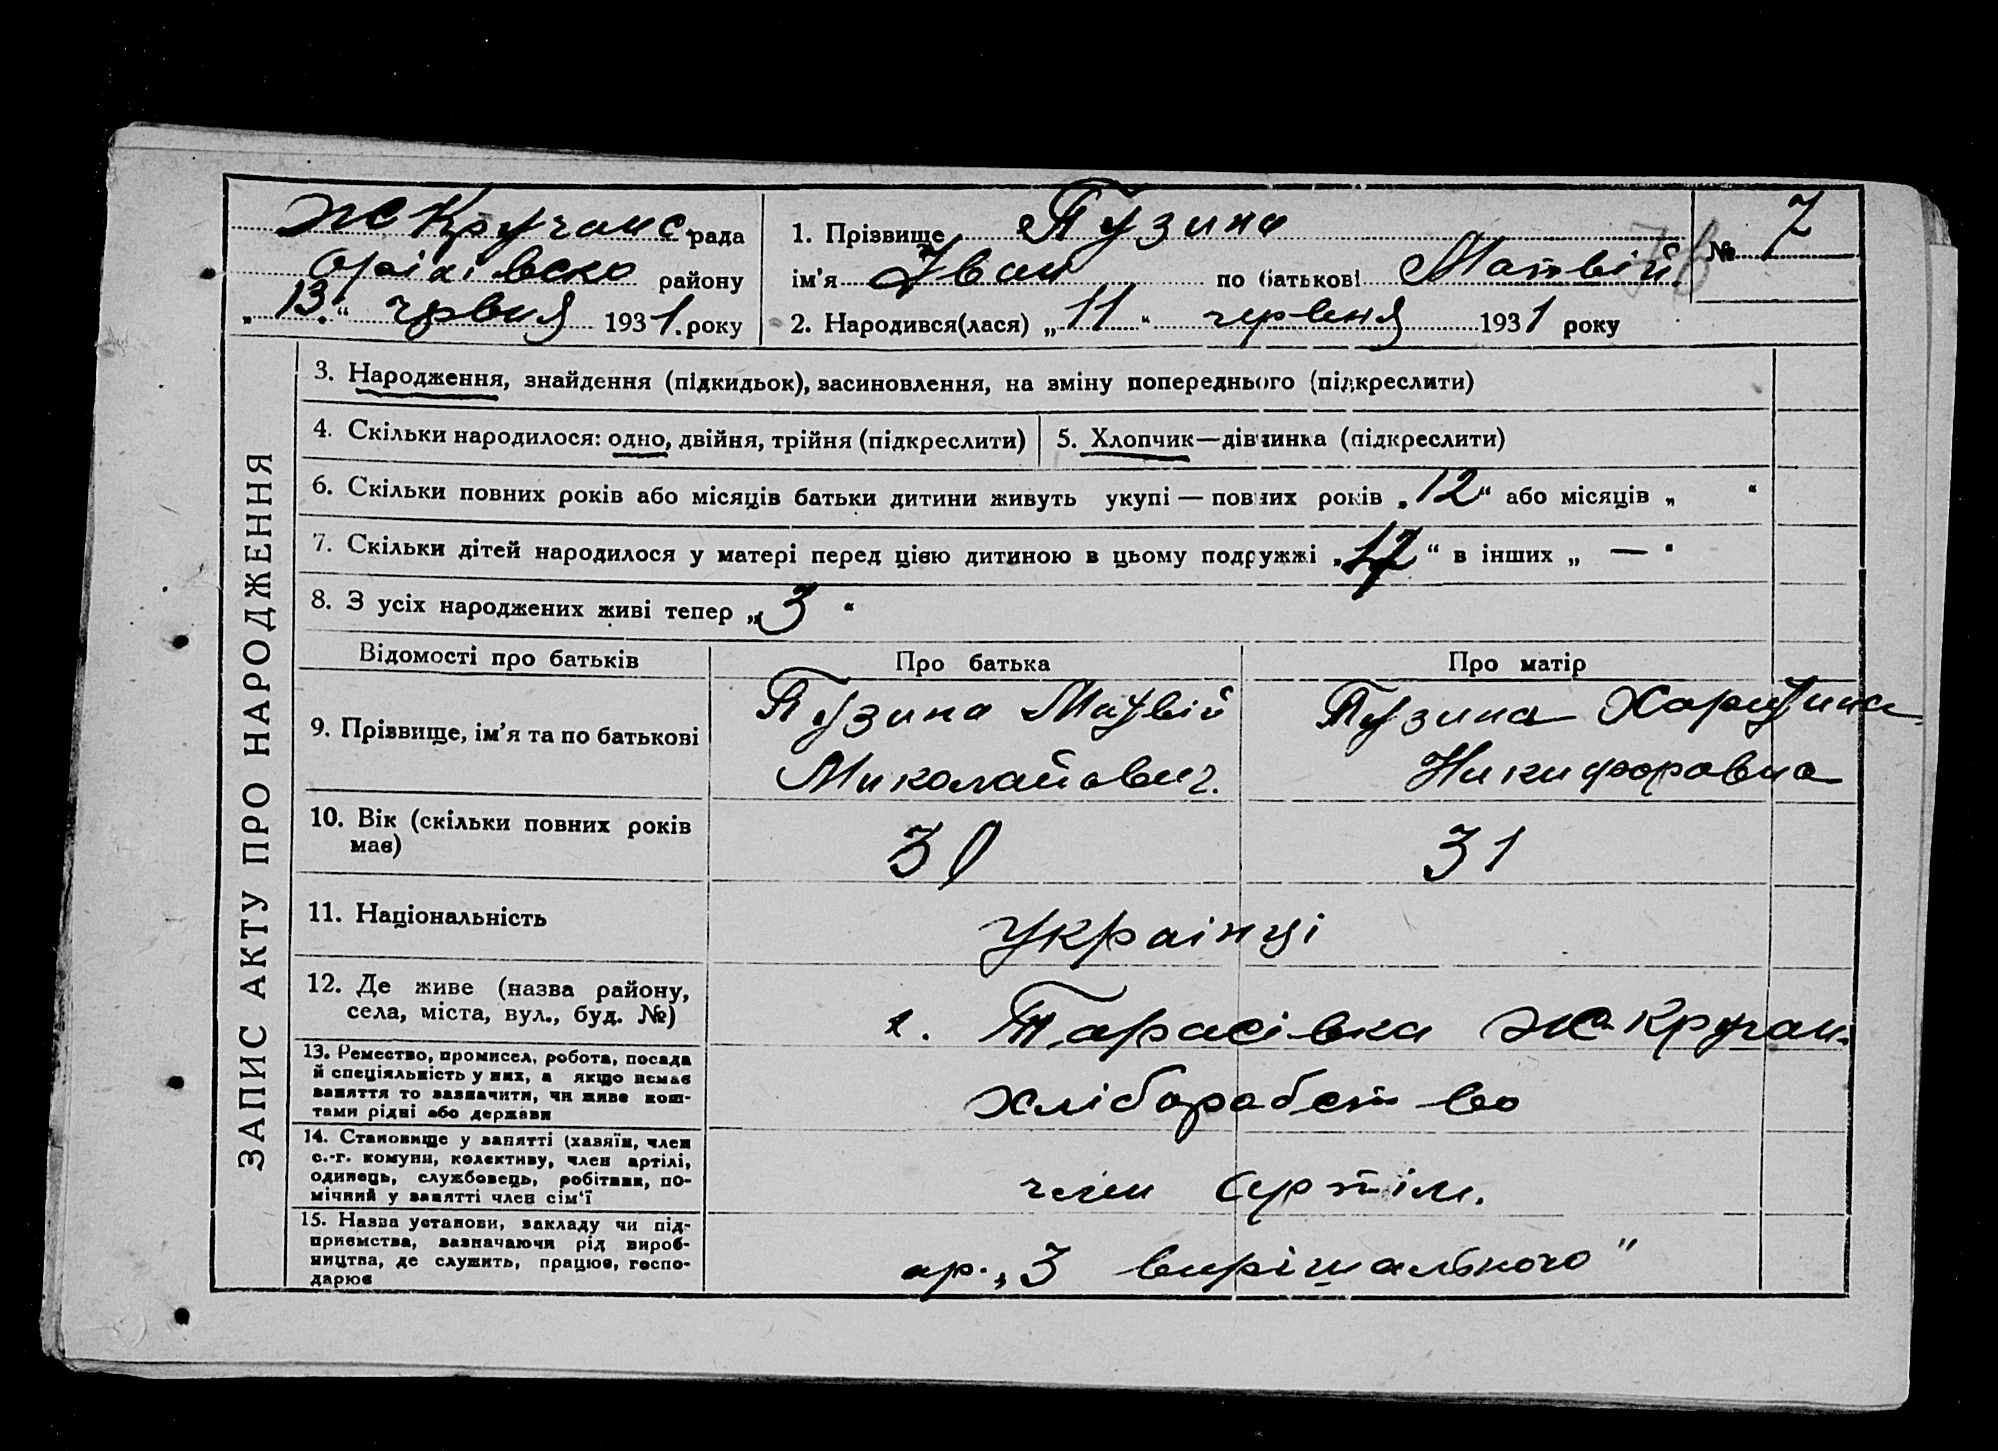 Ж Кручанс. рада
Оріхівсько району
„13.“ червня 1931. року
1. Прізвище Пузина
ім'я Іван по батькові Матвій.
2. Народився(лася) „11“ червня 1931 року
№ 7
ЗАПИС АКТУ ПРО НАРОДЖЕННЯ
3. Народження, знайдення (підкидьок), засиновлення, на зміну попереднього (підкреслити)
4. Скільки народилося: одно, двійня, трійня (підкреслити)
5. Хлопчик—дівчинка (підкреслити)
6. Скільки повних років або місяців батьки дитини живуть укупі — повних років „12“ або місяців „ “
7. Скільки дітей народилося у матері перед цією дитиною в цьому подружжі „ “ в інших „ — “
8. З усіх народжених живі тепер „3 “
Відомості про батьків Про батька Про матір
9. Прізвище, ім'я та по батькові
Пузина Матвій
Миколайович.
Пузина Харитина
Никифоровна
10. Вік (скільки повних років
має)
30 31
11. Національність українці
12. Де живе (назва району,
села, міста, вул., буд. №)
х. Тарасівка Ж. Кручан.
13. Ремество, промисел, робота, посада
й спеціяльність у них, а якщо немає
заняття то зазначити, чи живе кош-
тами рідні або держави
хліборобство
14. Становище у занятті (хазяїн, член
с.-г. комуни, колективу, член артілі,
одинець, службовець, робітник, по-
мічний у занятті член сім'ї
член артіли.
15. Назва установи, закладу чи під-
приємства, зазначаючи рід вироб-
ництва, де служить, працює, госпо-
дарює
ар. „3 вирішального“